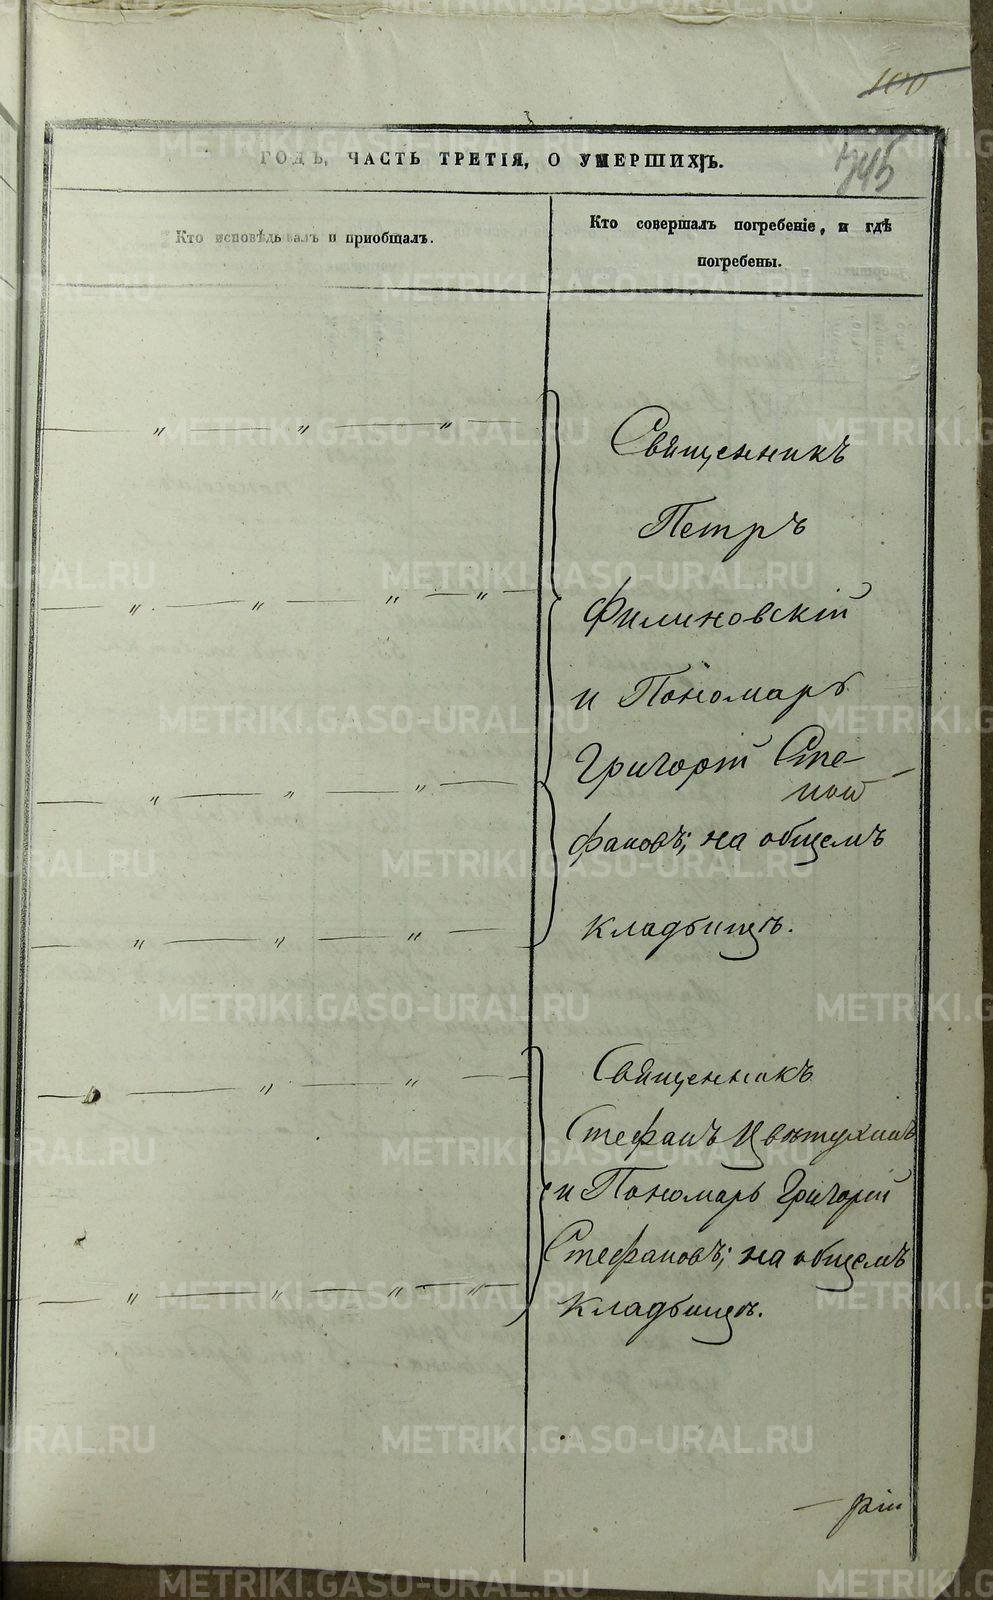 100
745
ГОДЪ, ЧАСТЬ ТРЕТІЯ, О УМЕРШИХЪ.
Кто исповѣдывалъ и пріобщалъ.
Кто совершалъ погребеніе, и гдѣ
погребены.
Священникъ
Петръ
Филиновскій
и Пономарь
Григорій Сте-
фановъ; на общемъ
кладбищѣ.
Священникъ
Стефанъ Цвѣтухинъ
и Пономарь Григорій
Стефановъ; на общемъ
кладбищѣ.
METRIKI.GASO-URAL.RU